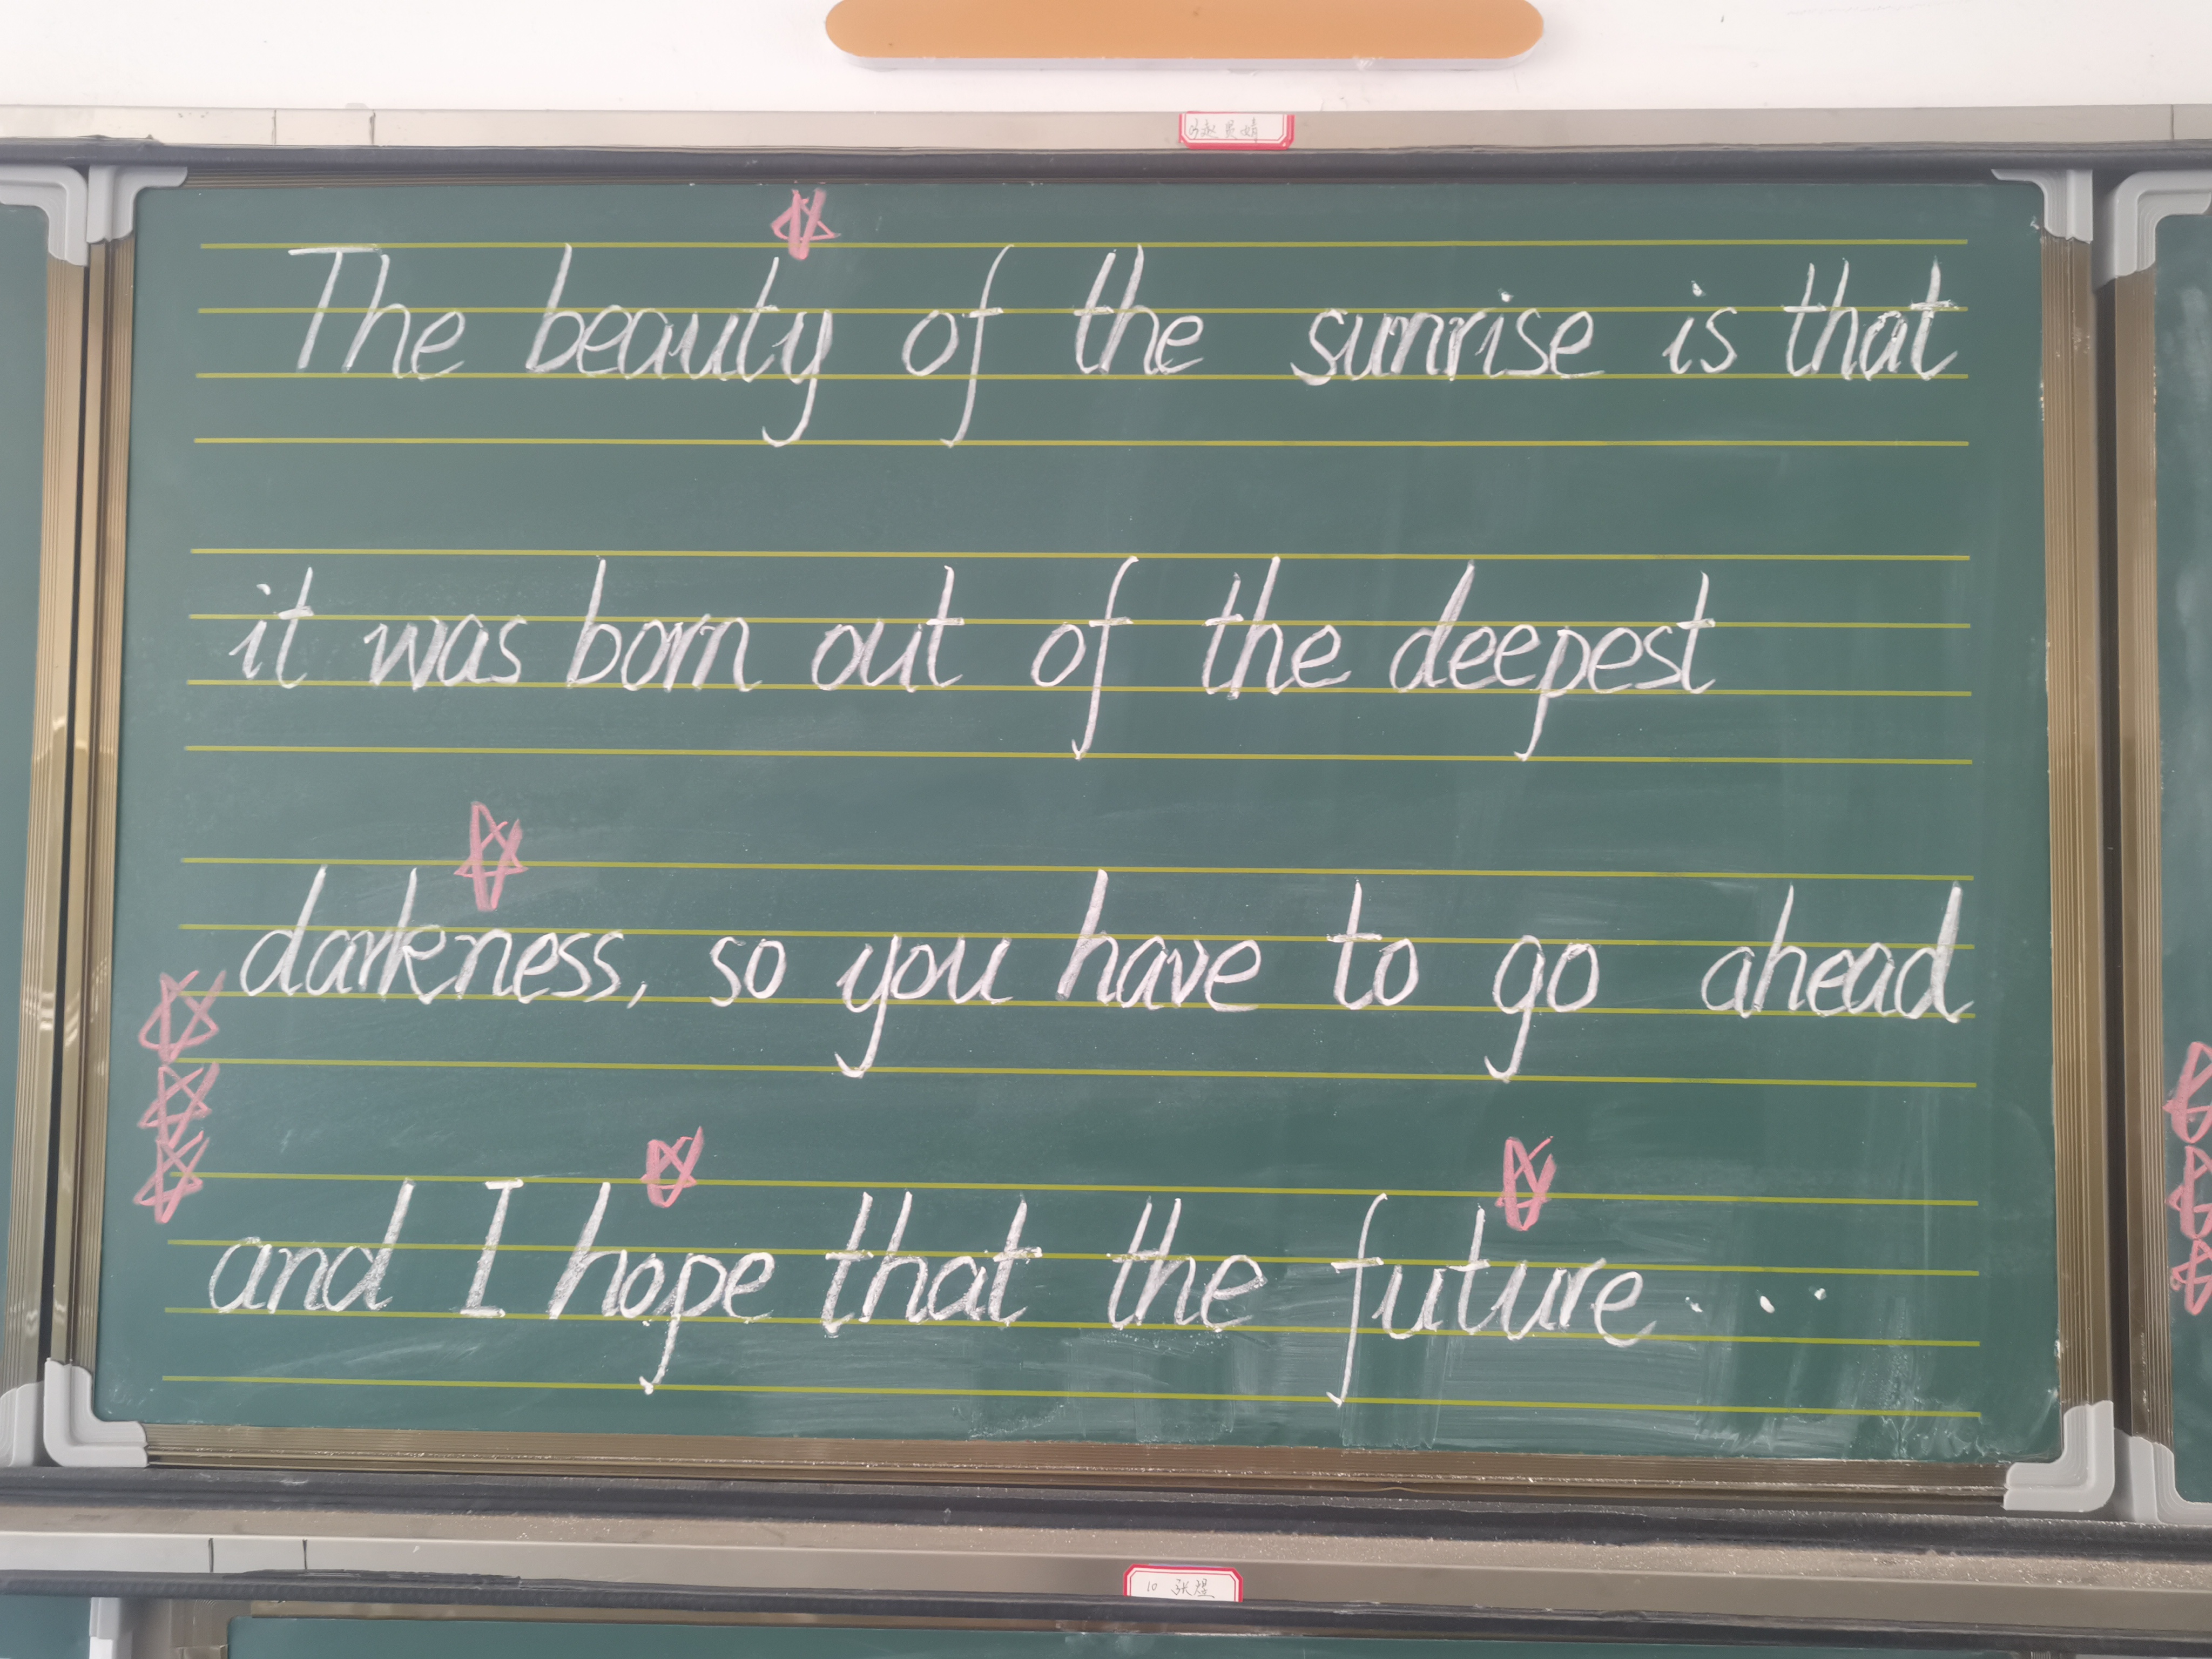 The beauty of the sunrise is that
it was born out of the deepest
darkness, so you have to go ahead
and I hope that the future...
10 张煜